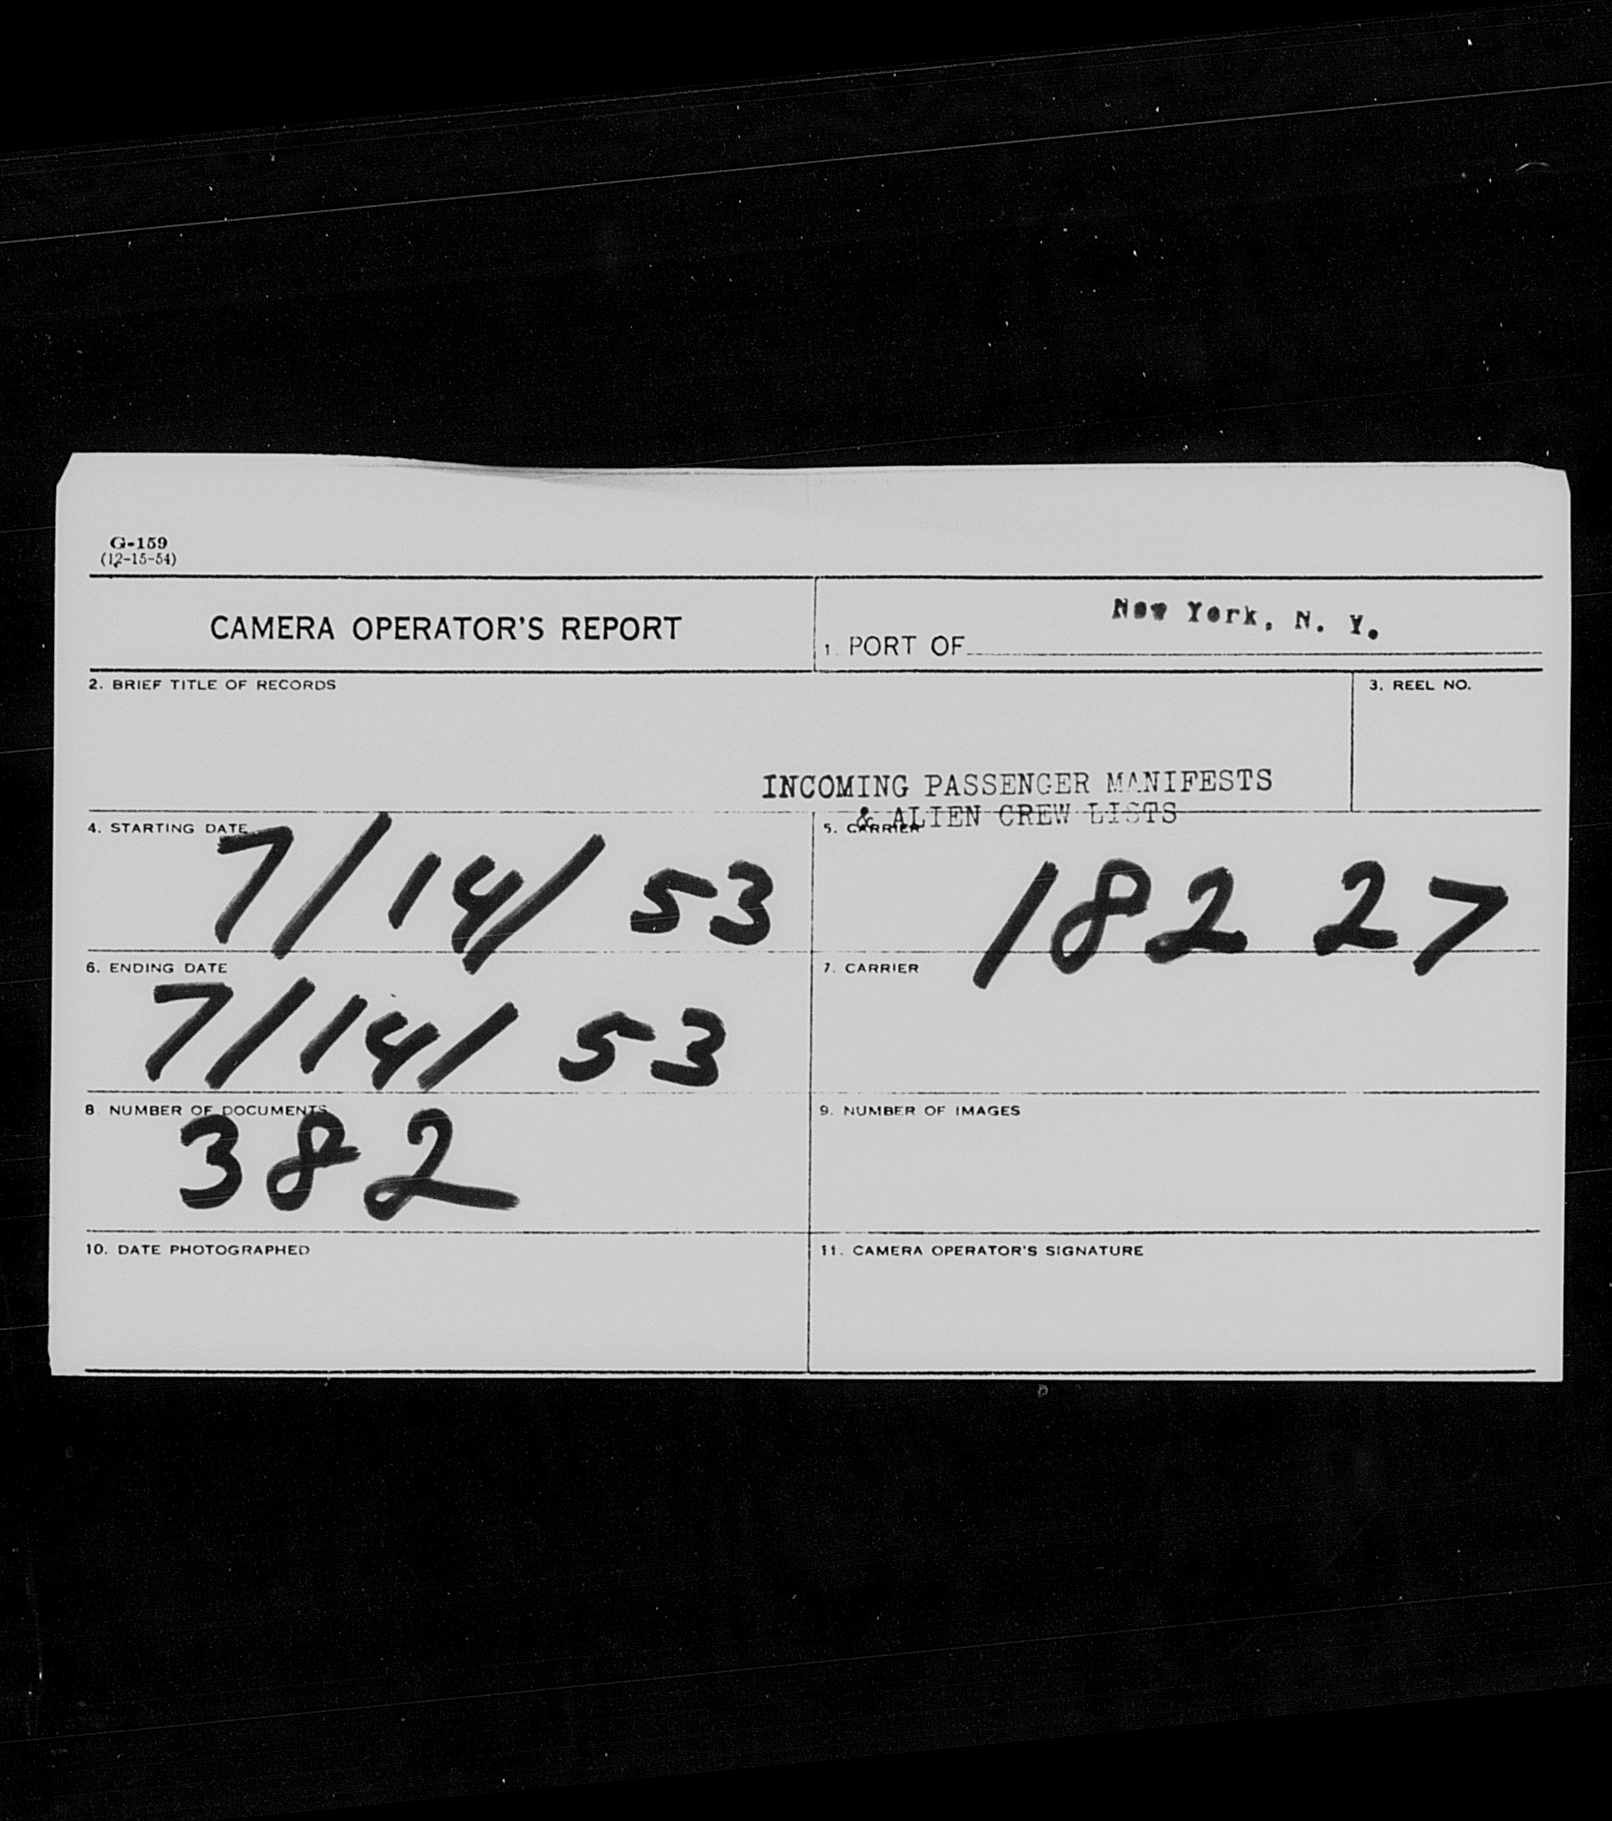 G-159
(12-15-54)
CAMERA OPERATOR'S REPORT
1. PORT OF New York, N. Y.
2. BRIEF TITLE OF RECORDS
3. REEL NO.
INCOMING PASSENGER MANIFESTS
& ALIEN CREW LISTS
4. STARTING DATE
7/14/53
5. CARRIER
182 27
6. ENDING DATE
7/14/53
7. CARRIER
8. NUMBER OF DOCUMENTS
382
9. NUMBER OF IMAGES
10. DATE PHOTOGRAPHED
11. CAMERA OPERATOR'S SIGNATURE